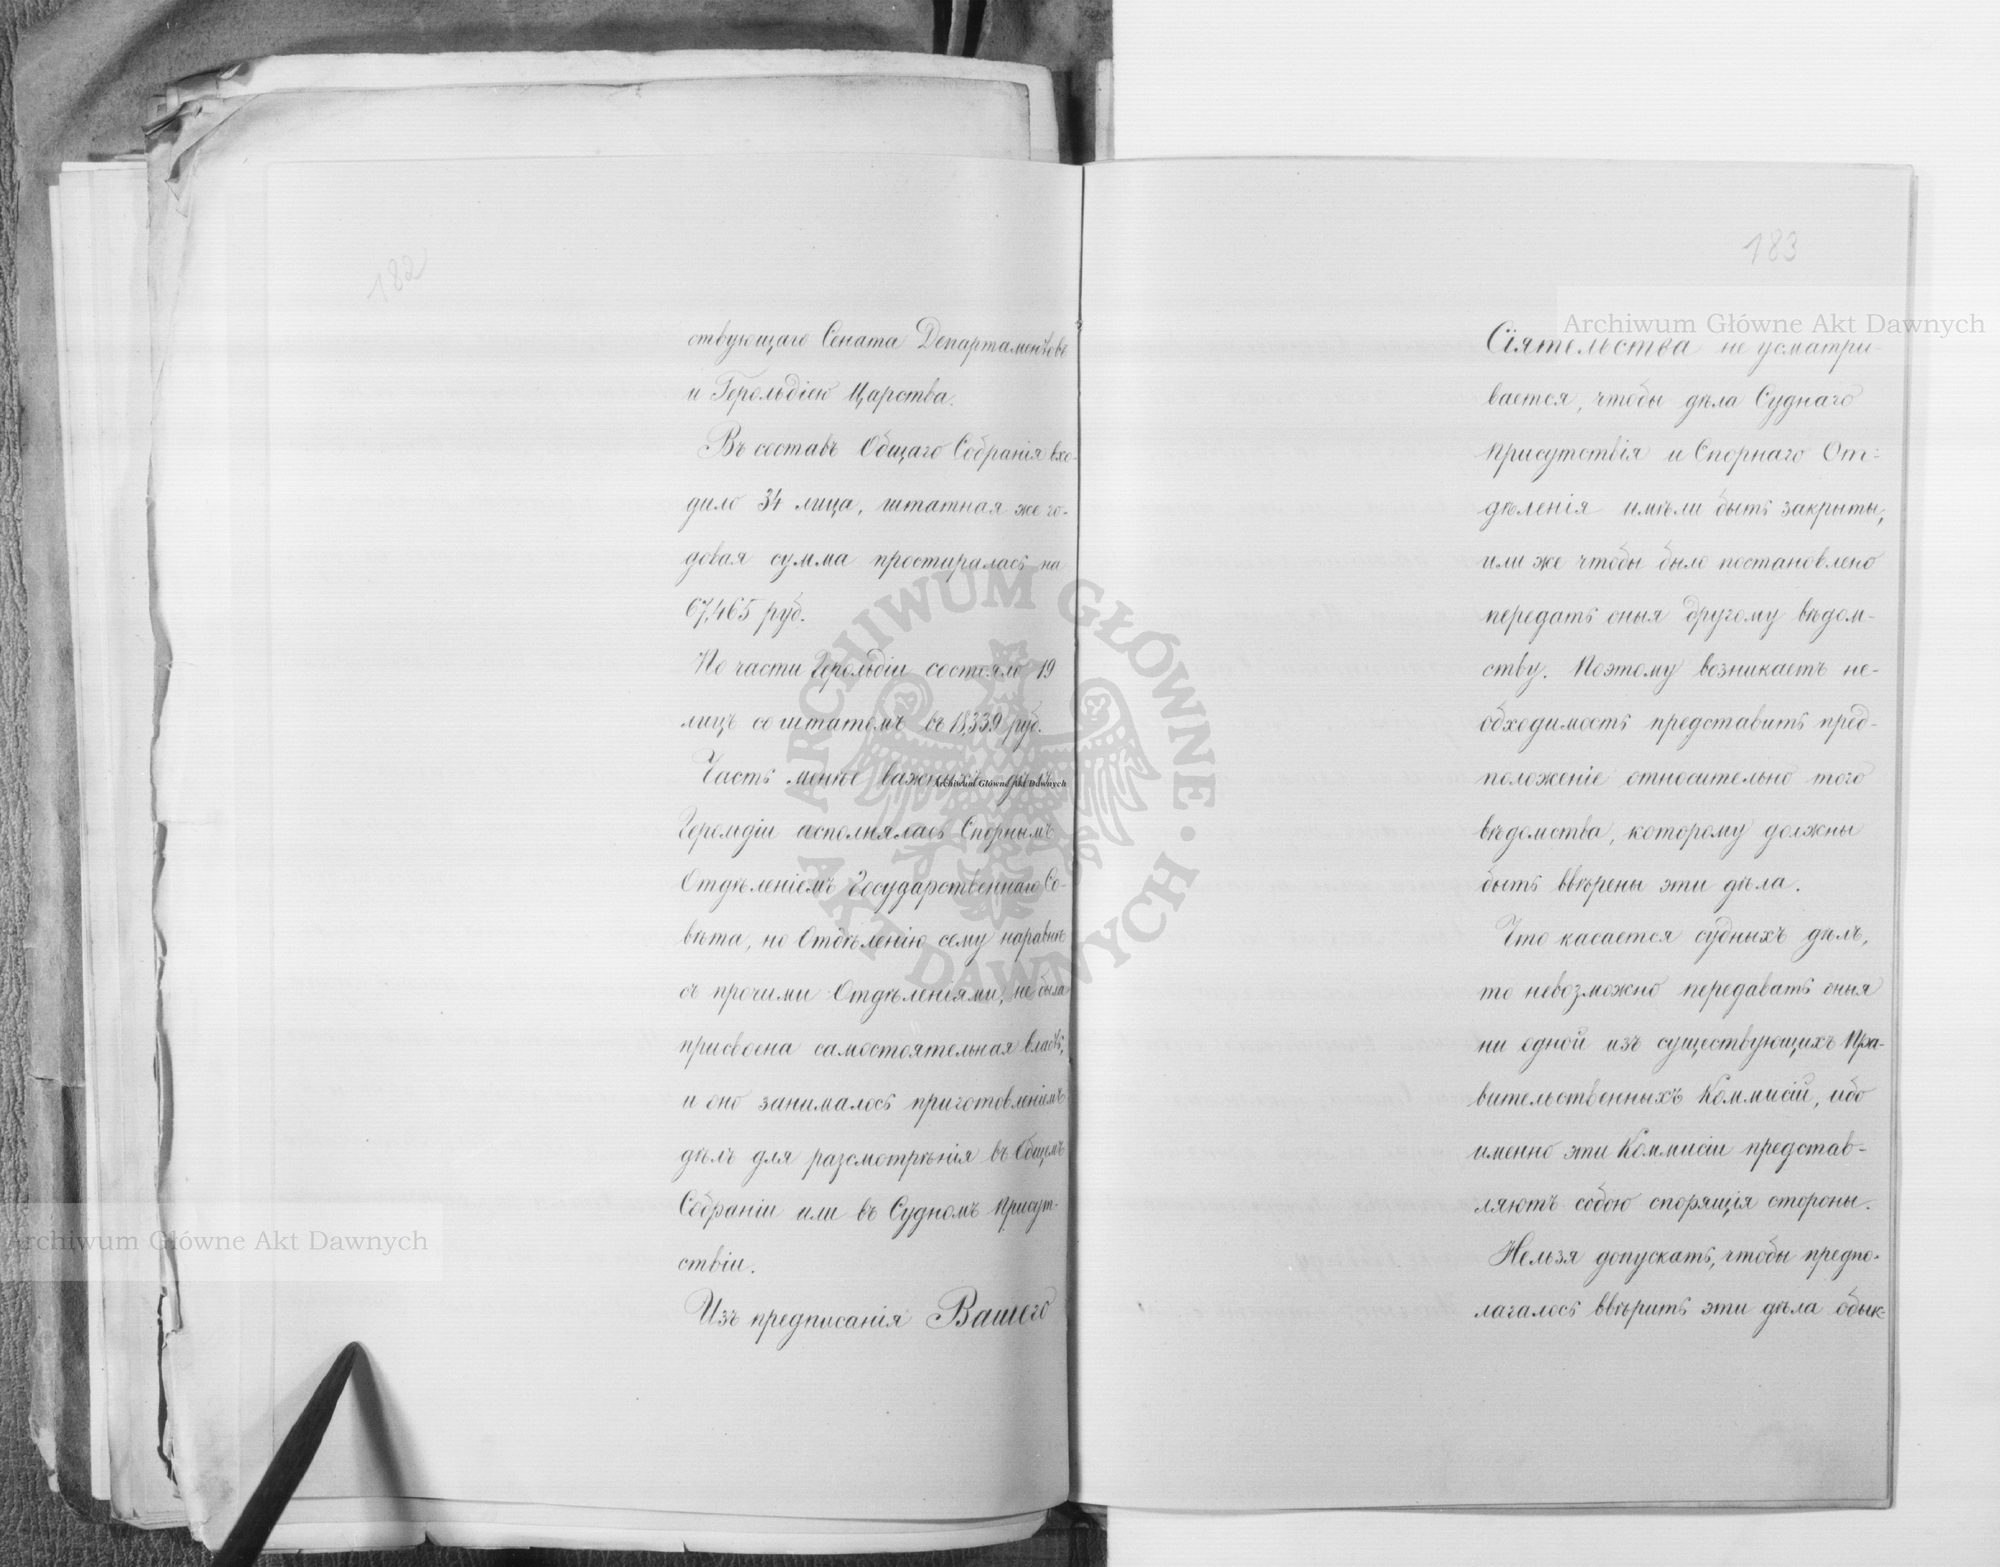 182
ствующаго Сената Департаментовъ
и Герольдіею Царства.
Въ составъ Общаго Собранія вхо-
дило 34 лица, штатная же го-
довая сумма простиралась на
67,465 руб.
По части Герольдіи состояло 19
лицъ со штатомъ въ 18,339 руб.
Часть менѣе важныхъ дѣлъ
Герольдіи исполнялась Спорнымъ
Отдѣленіемъ Государственнаго Со-
вѣта, но Отдѣленію сему наравнѣ
съ прочими Отдѣленіями, не была
присвоена самостоятельная власть,
и оно занималось приготовленіемъ
дѣлъ для разсмотрѣнія въ Общемъ
Собраніи или въ Судномъ Присут-
ствіи.
Изъ предписанія Вашего
183
Сіятельства не усматри-
вается, чтобы дѣла Суднаго
Присутствія и Спорнаго От-
дѣленія имѣли быть закрыты,
или же чтобы было постановлено
передать оныя другому вѣдом-
ству. Поэтому возникаетъ не-
обходимость представить пред-
положеніе относительно того
вѣдомства, которому должны
быть ввѣрены эти дѣла.
Что касается судныхъ дѣлъ,
то невозможно передавать оныя
ни одной изъ существующихъ Пра-
вительственныхъ Коммисій, ибо
именно эти Коммисіи представ-
ляютъ собою спорящія стороны.
Нельзя допускать, чтобы предпо-
лагалось ввѣрить эти дѣла обык-
Archiwum Główne Akt Dawnych
Archiwum Główne Akt Dawnych
Archiwum Główne Akt Dawnych
ARCHIWUM GŁÓWNE AKT DAWNYCH